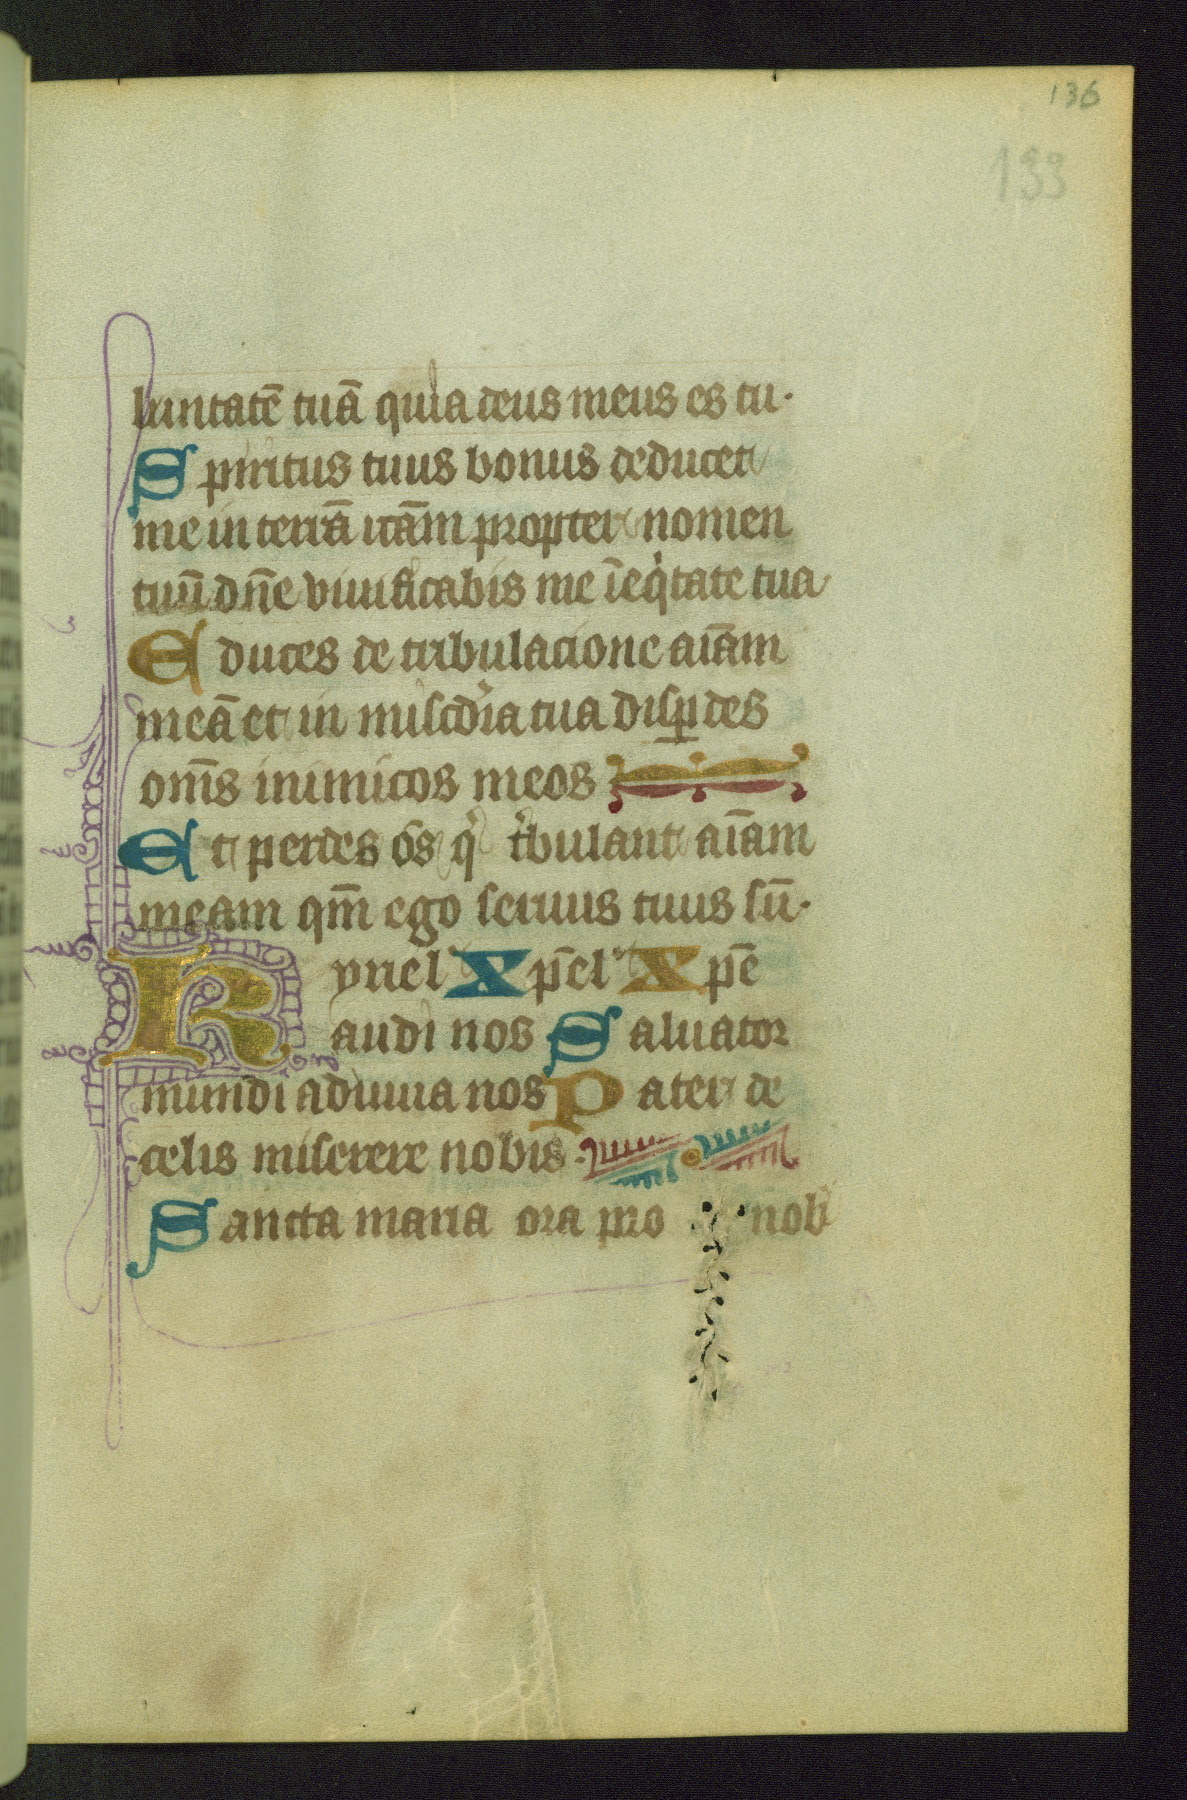 136
133
luntatē tuā quia deus meus es tu·
Spiritus tuus bonus deducet
me in terrā rcām propter nomen
tuū dn̄e viuificabis me ī eq̇tate tua
Educes de tribulacione aīam
meā et in mis̄cdia tua disꝑdes
om̄s inimicos meos
Et perdes ōs q̇ tbulant aīam
meam qm̄ ego seruus tuus sū·
Kyriel' Xp̄el' Xp̄e
audi nos Saluator
mundi adiuua nos Pater de
celis miserere nobis·
Sancta maria ora pro nob